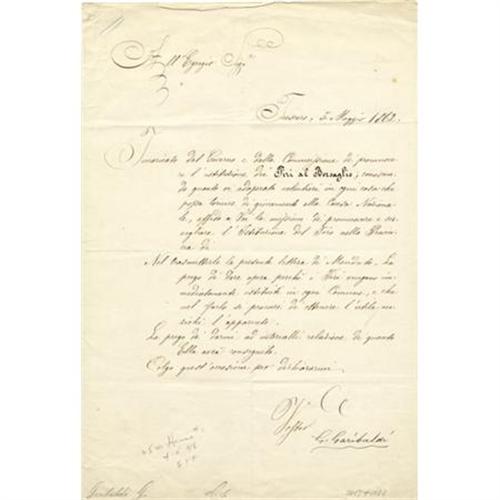 All'Egregio Sigr
Trescorre, 3. Maggio 1862.
Incaricato dal Governo e dalla Commissione di promuove-
re l'istituzione dei Tiri al Bersaglio; conoscen-
do quanto vi adoprate volentieri in ogni cosa che
possa tornare di giovamento alla Causa Naziona-
le, affido a Voi la missione di promuovere e sor-
vegliare l'Istituzione del Tiro nella Provin-
cia di
Nel trasmetterle la presente lettera di Mandato, La
prego di dare opera perchè i Tiri vengano im-
mediatamente istituiti in ogni Comune, e che
nel farlo si procuri di ottenere l'utile
l'apparente.
La prego di darmi ad intervalli relazione di quanto
Ella avrà conseguito.
Colgo quest'occasione per dichiararmi
Vostro
G. Garibaldi
Garibaldi G.